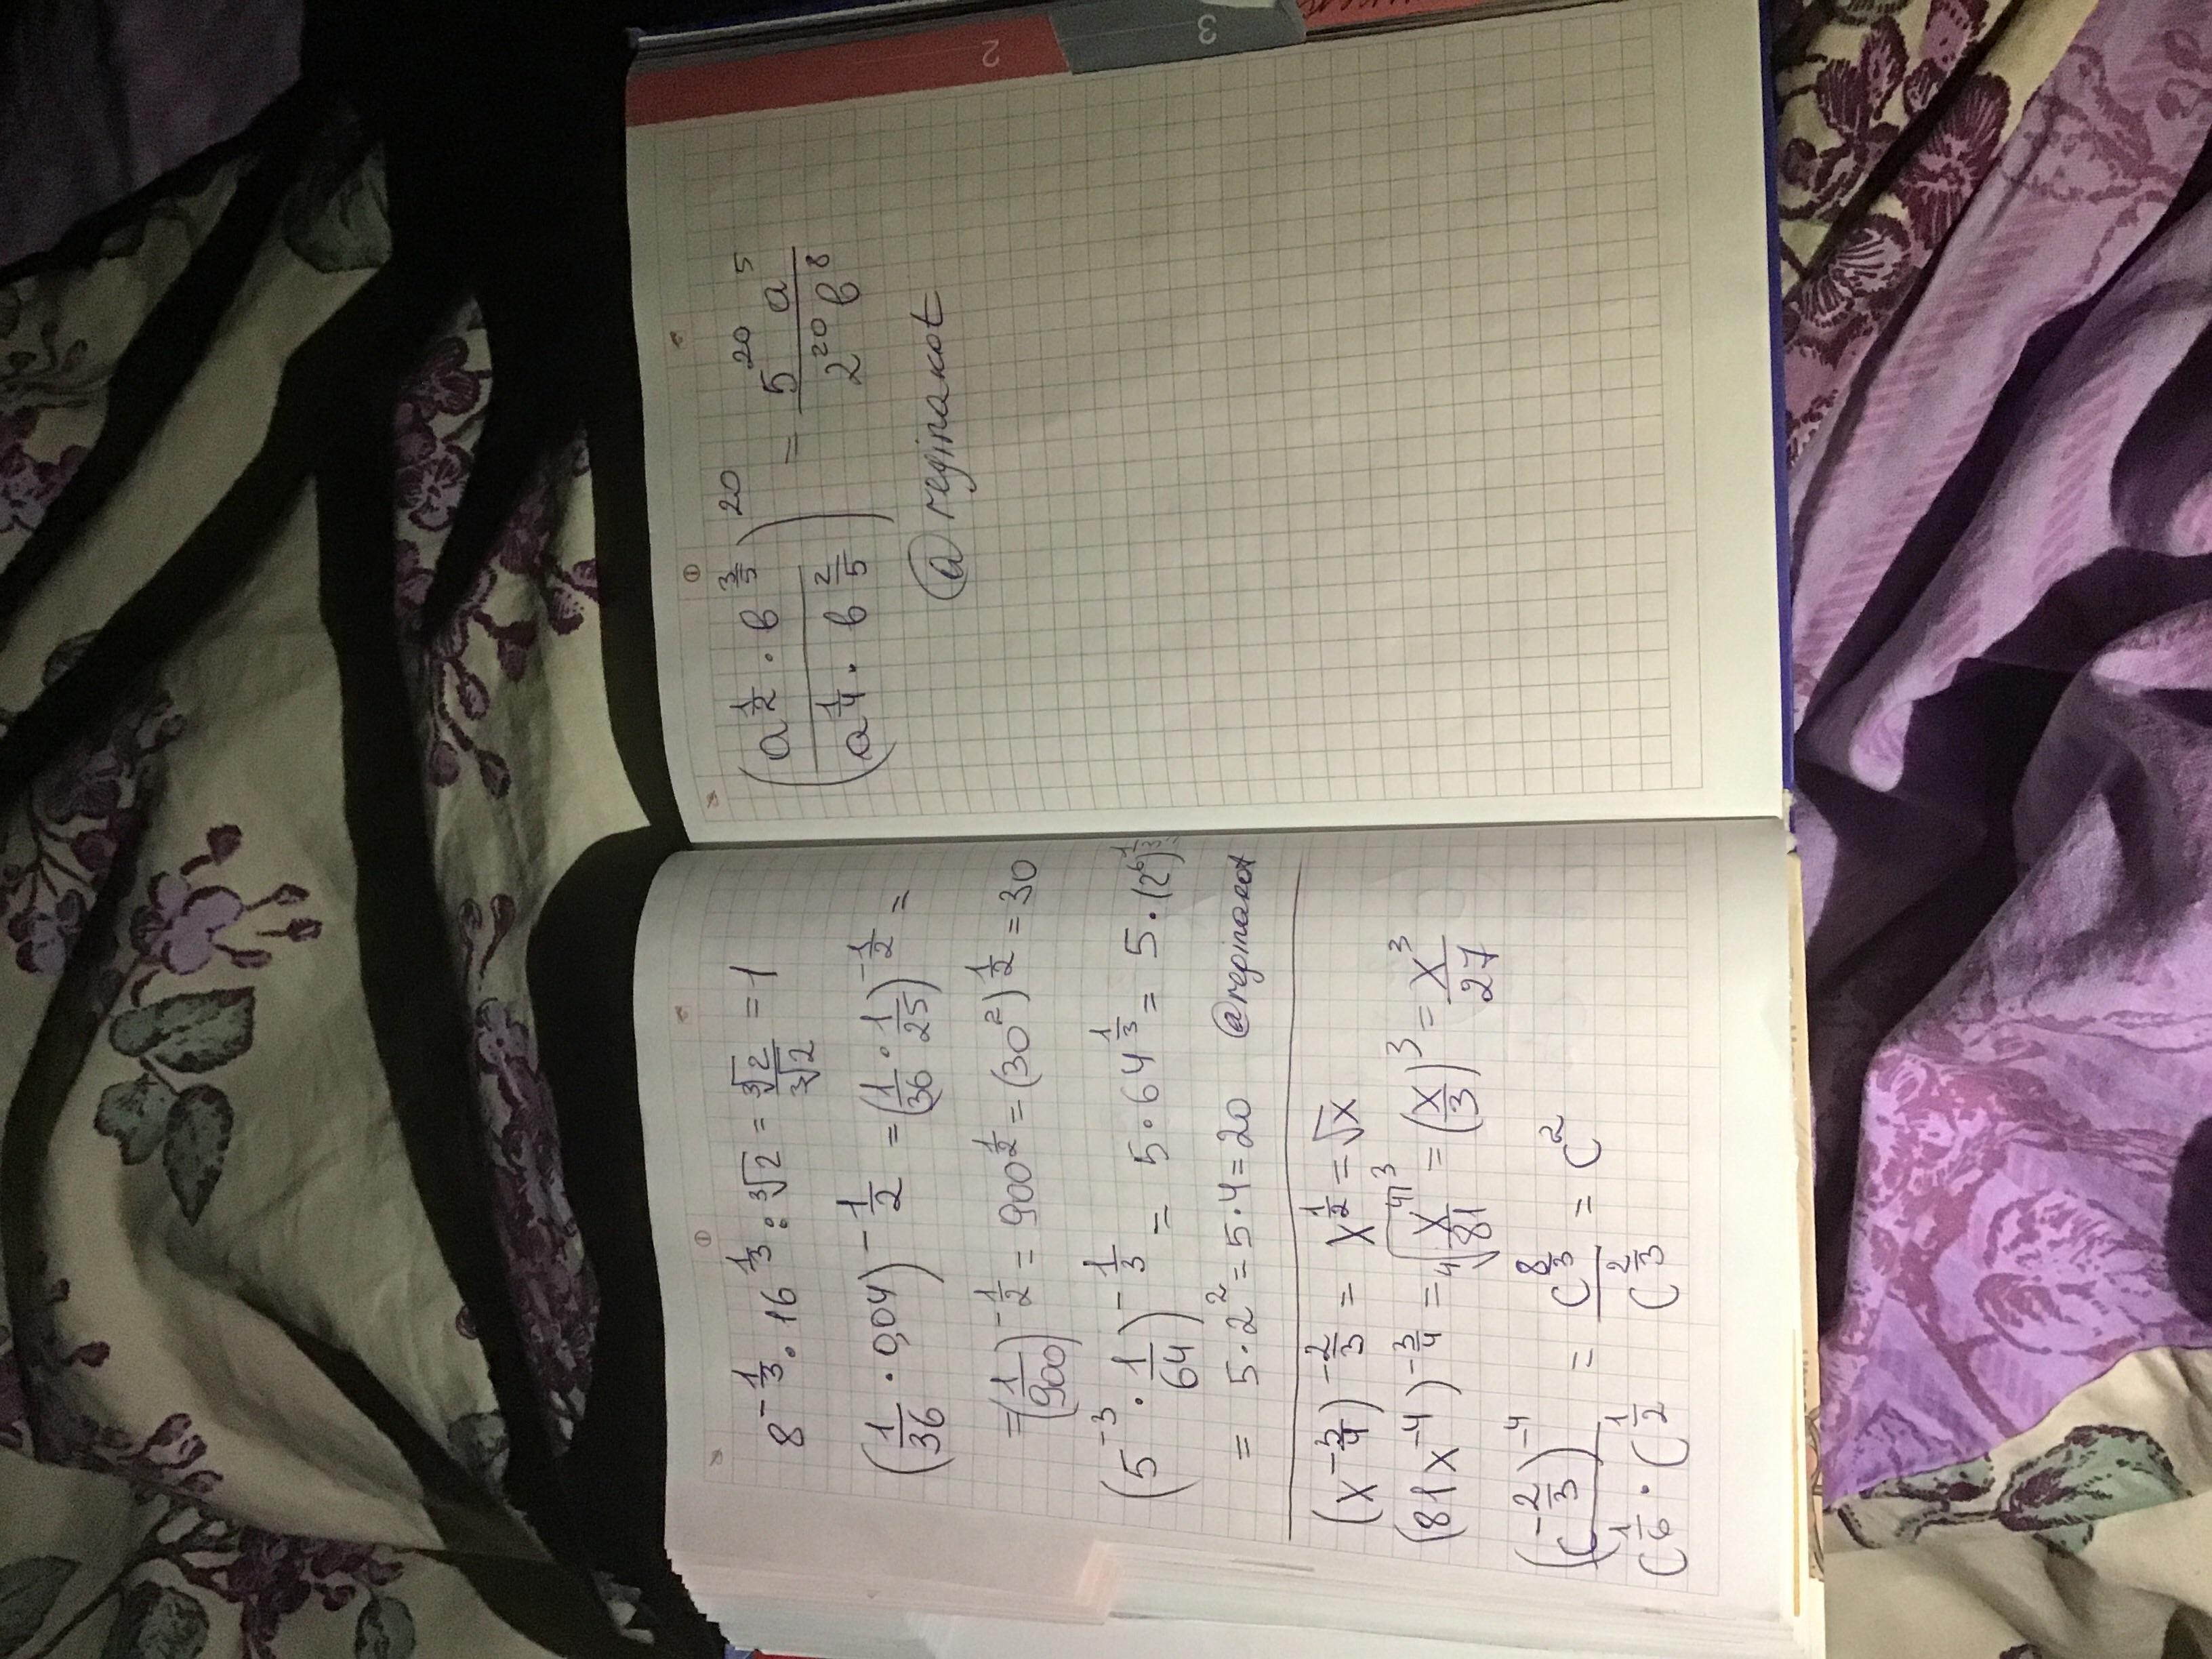 8^{-\frac{1}{3}} · 16^{\frac{1}{3}} : \sqrt[3]{2} = \frac{\sqrt[3]{2}}{\sqrt[3]{2}} = 1
(\frac{1}{36} · 0,04)^{-\frac{1}{2}} = (\frac{1}{36} · \frac{1}{25})^{-\frac{1}{2}} =
= (\frac{1}{900})^{-\frac{1}{2}} = 900^{\frac{1}{2}} = (30^2)^{\frac{1}{2}} = 30
(5^{-3} · \frac{1}{64})^{-\frac{1}{3}} = 5 · 64^{\frac{1}{3}} = 5 · (2^6)^{\frac{1}{3}}
= 5 · 2^2 = 5 · 4 = 20 @reginakot
(x^{-\frac{3}{4}})^{-\frac{2}{3}} = x^{\frac{1}{2}} = \sqrt{x}
(81x^{-4})^{-\frac{3}{4}} = \sqrt[4]{\frac{x^4}{81}}^3 = (\frac{x}{3})^3 = \frac{x^3}{27}
\frac{(c^{-\frac{2}{3}})^{-4}}{c^{\frac{1}{6}} · c^{\frac{1}{2}}} = \frac{c^{\frac{8}{3}}}{c^{\frac{2}{3}}} = c^2
(\frac{a^{\frac{1}{2}} · b^{\frac{3}{5}}}{a^{\frac{1}{4}} · b^{\frac{2}{5}}})^{20} = \frac{5^{20} a^5}{2^{20} b^8}
@reginakot
2
3